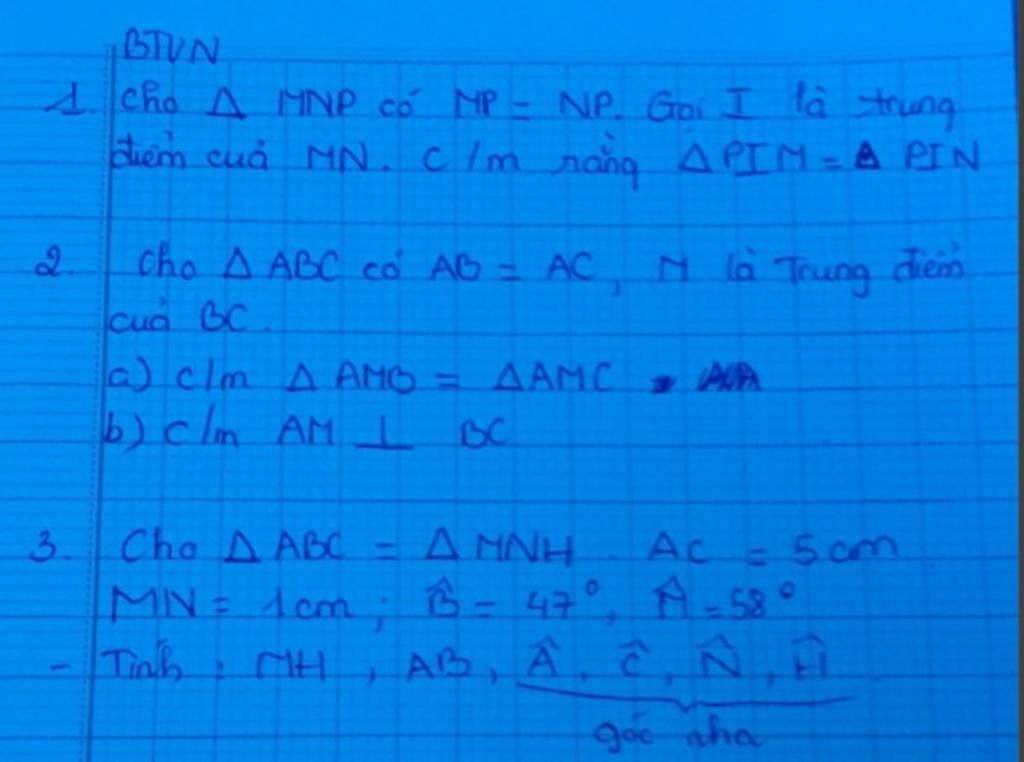 BTVN
1. Cho Δ MNP có MP = NP. Gọi I là trung
điểm của MN. C/m rằng Δ PIM = Δ PIN
2. Cho Δ ABC có AB = AC, M là Trung điểm
của BC.
a) c/m Δ AMB = Δ AMC
b) c/m AM ⊥ BC
3. Cho Δ ABC = Δ MNH. AC = 5 cm
MN = 1cm; B̂ = 47°, M̂ = 58°
- Tính: MH, AB, Â, Ĉ, N̂, Ĥ
góc nha